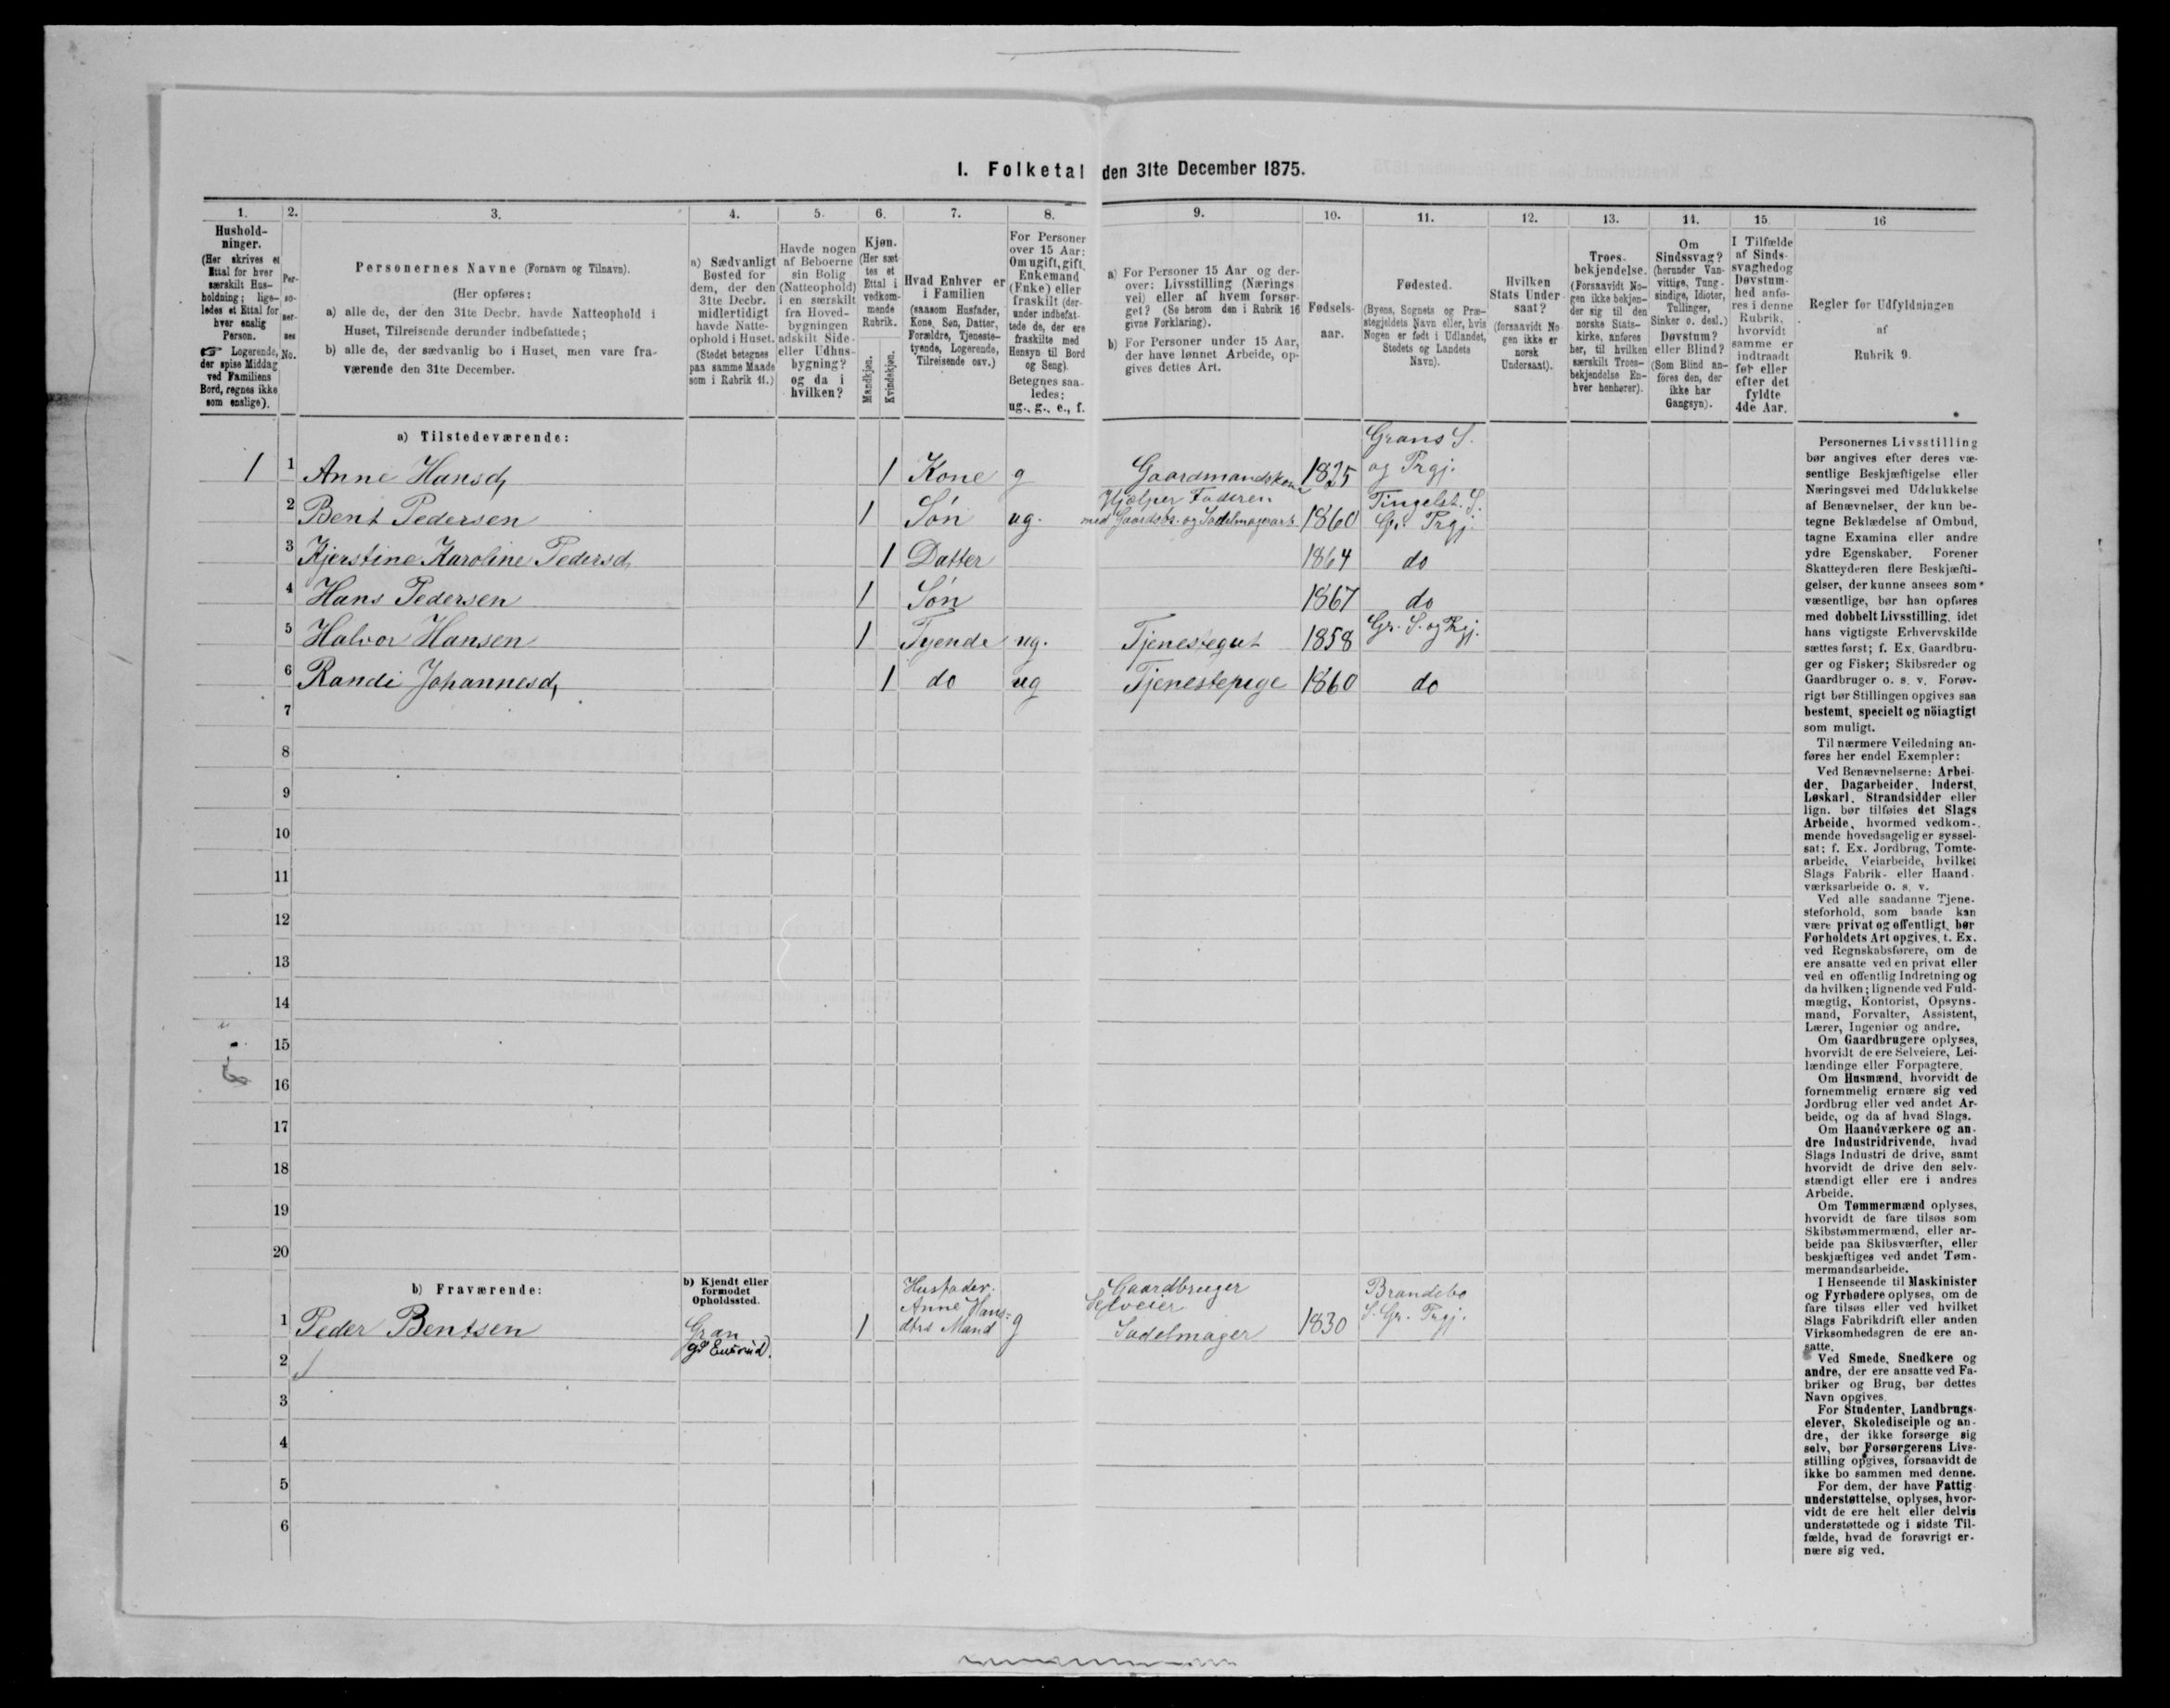 I. Folketal den 31te December 1875.
1. 2. 3. 4. 5. 6. 7. 8. 9. 10. 11. 12. 13. 14. 15 16
Hushold-
ninger.
(Her skrives et
Ettal for hver
særskilt Hus-
holdning; lige-
ledes et Ettal for
hver enslig
Person.
☞ Logerende,
der spise Middag
ved Familiens
Bord, regnes ikke
som enslige).
Per-
so-
ner-
nes
No.
Personernes Navne (Fornavn og Tilnavn).
(Her opføres:
a) alle de, der den 31te Decbr. havde Natteophold i
Huset, Tilreisende derunder indbefattede;
b) alle de, der sædvanlig bo i Huset, men vare fra-
værende den 31te December.
a) Sædvanligt
Bosted for
dem, der den
31te Decbr.
midlertidigt
havde Natte-
ophold i Huset.
(Stedet betegnes
paa samme Maade
som i Rubrik 11.)
Havde nogen
af Beboerne
sin Bolig
(Natteophold)
i en særskilt
fra Hoved-
bygningen
adskilt Side-
eller Udhus-
bygning?
og da i
hvilken?
Kjøn.
(Her sæt-
tes et
Ettal i
vedkom-
mende
Rubrik.
Mandkjøn.
Kvindekjøn.
Hvad Enhver er
i Familien
(saasom Husfader,
Kone, Søn, Datter,
Forældre, Tjeneste-
tyende, Logerende,
Tilreisende osv.)
For Personer
over 15 Aar:
Om ugift, gift,
Enkemand
(Enke) eller
fraskilt (der-
under indbefat-
tede de, der ere
fraskilte med
Hensyn til Bord
og Seng).
Betegnes saa-
ledes:
ug., g., e., f.
a) For Personer 15 Aar og der-
over: Livsstilling (Nærings
vei) eller af hvem forsør-
get? (Se herom den i Rubrik 16
givne Forklaring).
b) For Personer under 15 Aar,
der have lønnet Arbeide, op-
gives dettes Art.
Fødsels-
aar.
Fødested.
(Byens, Sognets og Præ-
stegjeldets Navn eller, hvis
Nogen er født i Udlandet,
Stedets og Landets
Navn).
Hvilken
Stats Under
saat?
(forsaavidt No
gen ikke er
norsk
Undersaat).
Troes-
bekjendelse.
(Forsaavidt No-
gen ikke bekjen-
der sig til den
norske Stats-
kirke, anføres
her, til hvilken
særskilt Troes-
bekjendelse En-
hver henhører).
Om
Sindssvag?
(herunder Van-
vittige, Tung-
sindige, Idioter,
Tullinger,
Sinker o. desl.)
Døvstum?
eller Blind?
(Som Blind an-
föres den, der
ikke har
Gangsyn).
I Tilfælde
af Sinds-
svaghedog
Døvstum-
hed anfø-
res i denne
Rubrik,
hvorvidt
samme er
indtraadt
før eller
efter det
fyldte
4de Aar.
Regler for Udfyldningen
af
Rubrik 9.
a) Tilstedeværende:
1 1 Anne Hansd, 1 Kone g Gaardmandskone 1825 Grans S.
og Prgj.
2 Bent Pedersen 1 Søn ug. Hjælper Faderen
med Gaardsbr. og Sadelmagerarb. 1860 Tingelst. S.
Gr. Prgj.
3 Kjerstine Karoline Pedersd, 1 Datter 1864 do
4 Hans Pedersen 1 Søn 1867 do
5 Halvor Hansen 1 Tyende ug. Tjenestegut 1858 Gr. S. og Prgj.
6 Randi Johannesd, 1 do ug Tjenestepige 1860 do
7
8
9
10
11
12
13
14
15
16
17
18
19
20
b) Fraværende:
b) Kjendt eller
formodet
Opholdssted.
1 Peder Bentsen Gran
1 Husfader.
Anne Hans-
dtrs Mand g Gaardbruger
Selveier
Sadelmager 1830 Brandebo
S. Gr. Prgj.
2
3
4
5
6
Personernes Livsstilling
bør angives efter deres væ-
sentlige Beskjæftigelse eller
Næringsvei med Udelukkelse
af Benævnelser, der kun be-
tegne Beklædelse af Ombud,
tagne Examina eller andre
ydre Egenskaber. Forener
Skatteyderen flere Beskjæfti-
gelser, der kunne ansees som
væsentlige, bør han opføres
med dobbelt Livsstilling, idet
hans vigtigste Erhvervskilde
sættes først; f. Ex. Gaardbru-
ger og Fisker; Skibsreder og
Gaardbruger o. s. v. Forøv-
rigt bør Stillingen opgives saa
bestemt, specielt og nöiagtigt
som muligt.
Til nærmere Veiledning an-
føres her endel Exempler:
Ved Benævnelserne: Arbei-
der, Dagarbeider, Inderst,
Løskarl, Strandsidder eller
lign. bør tilføies det Slags
Arbeide, hvormed vedkom-
mende hovedsagelig er syssel-
sat; f. Ex. Jordbrug, Tomte-
arbeide, Veiarbeide, hvilket
Slags Fabrik- eller Haand-
værksarbeide o. s. v.
Ved alle saadanne Tjene-
steforhold, som baade kan
være privat og offentligt, bør
Forholdets Art opgives, t. Ex.
ved Regnskabsførere, om de
ere ansatte ved en privat eller
ved en offentlig Indretning og
da hvilken; lignende ved Fuld-
mægtig, Kontorist, Opsyns-
mand, Forvalter, Assistent,
Lærer, Ingeniør og andre.
Om Gaardbrugere oplyses,
hvorvidt de ere Selveiere, Lei-
lændinge eller Forpagtere.
Om Husmænd, hvorvidt de
fornemmelig ernære sig ved
Jordbrug eller ved andet Ar-
beide, og da af hvad Slags.
Om Haandværkere og an-
dre Industridrivende, hvad
Slags Industri de drive, samt
hvorvidt de drive den selv-
stændigt eller ere i andres
Arbeide.
Om Tømmermænd oplyses,
hvorvidt de fare tilsøs som
Skibstømmermænd, eller ar-
beide paa Skibsværfter, eller
beskjæftiges ved andet Tøm-
mermandsarbeide.
I Henseende til Maskinister
og Fyrbødere oplyses, om de
fare tilsøs eller ved hvilket
Slags Fabrikdrift eller anden
Virksomhedsgren de ere an-
satte.
Ved Smede, Snedkere og
andre, der ere ansatte ved Fa-
briker og Brug, bør dettes
Navn opgives.
For Studenter, Landbrugs-
elever, Skoledisciple og an-
dre, der ikke forsørge sig
selv, bør Forsørgerens Livs-
stilling opgives, forsaavidt de
ikke bo sammen med denne.
For dem, der have Fattig-
understøttelse, oplyses, hvor-
vidt de ere helt eller delvis
understøttede og i sidste Til-
fælde, hvad de forøvrigt er-
nære sig ved.